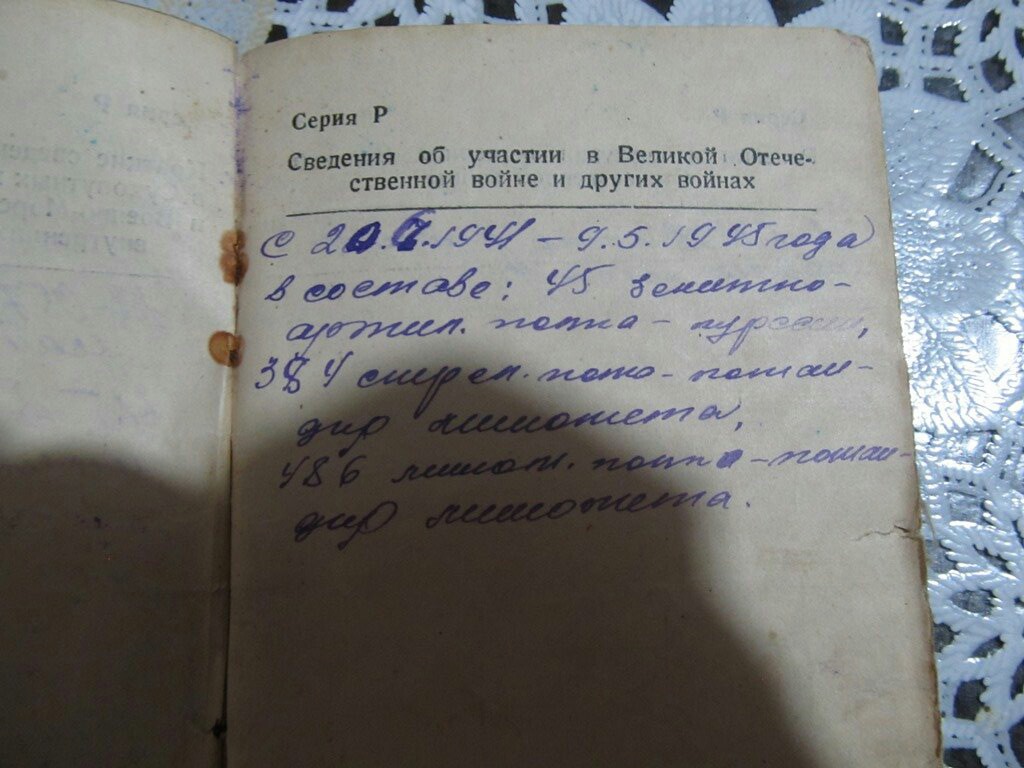 Серия Р
Сведения об участии в Великой Отече-
ственной войне и других войнах
С 20.6.1941 – 9.5.1945 года
в составе: 45 зенитно-
артил. полка – курсант,
384 стрел. полк – коман-
дир миномета,
486 мином. полка – коман-
дир миномета.